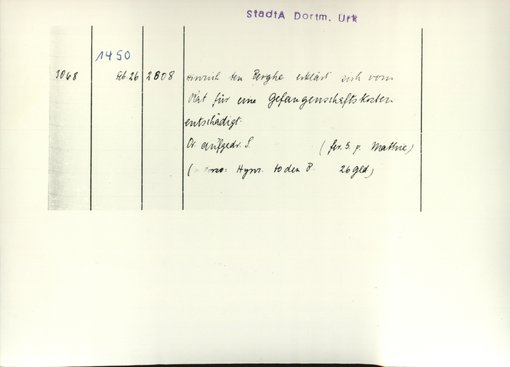 StadtA Dortm. Urk
1450
3068 Feb 26 2808 Hinrich ten Berghe erklärt sich vom
Rat für eine Gefangenschaftskosten
entschädigt.
Or. aufgedr. S. (fer. 5. p. Mathie)
Hynr. to den B. 26 gld)